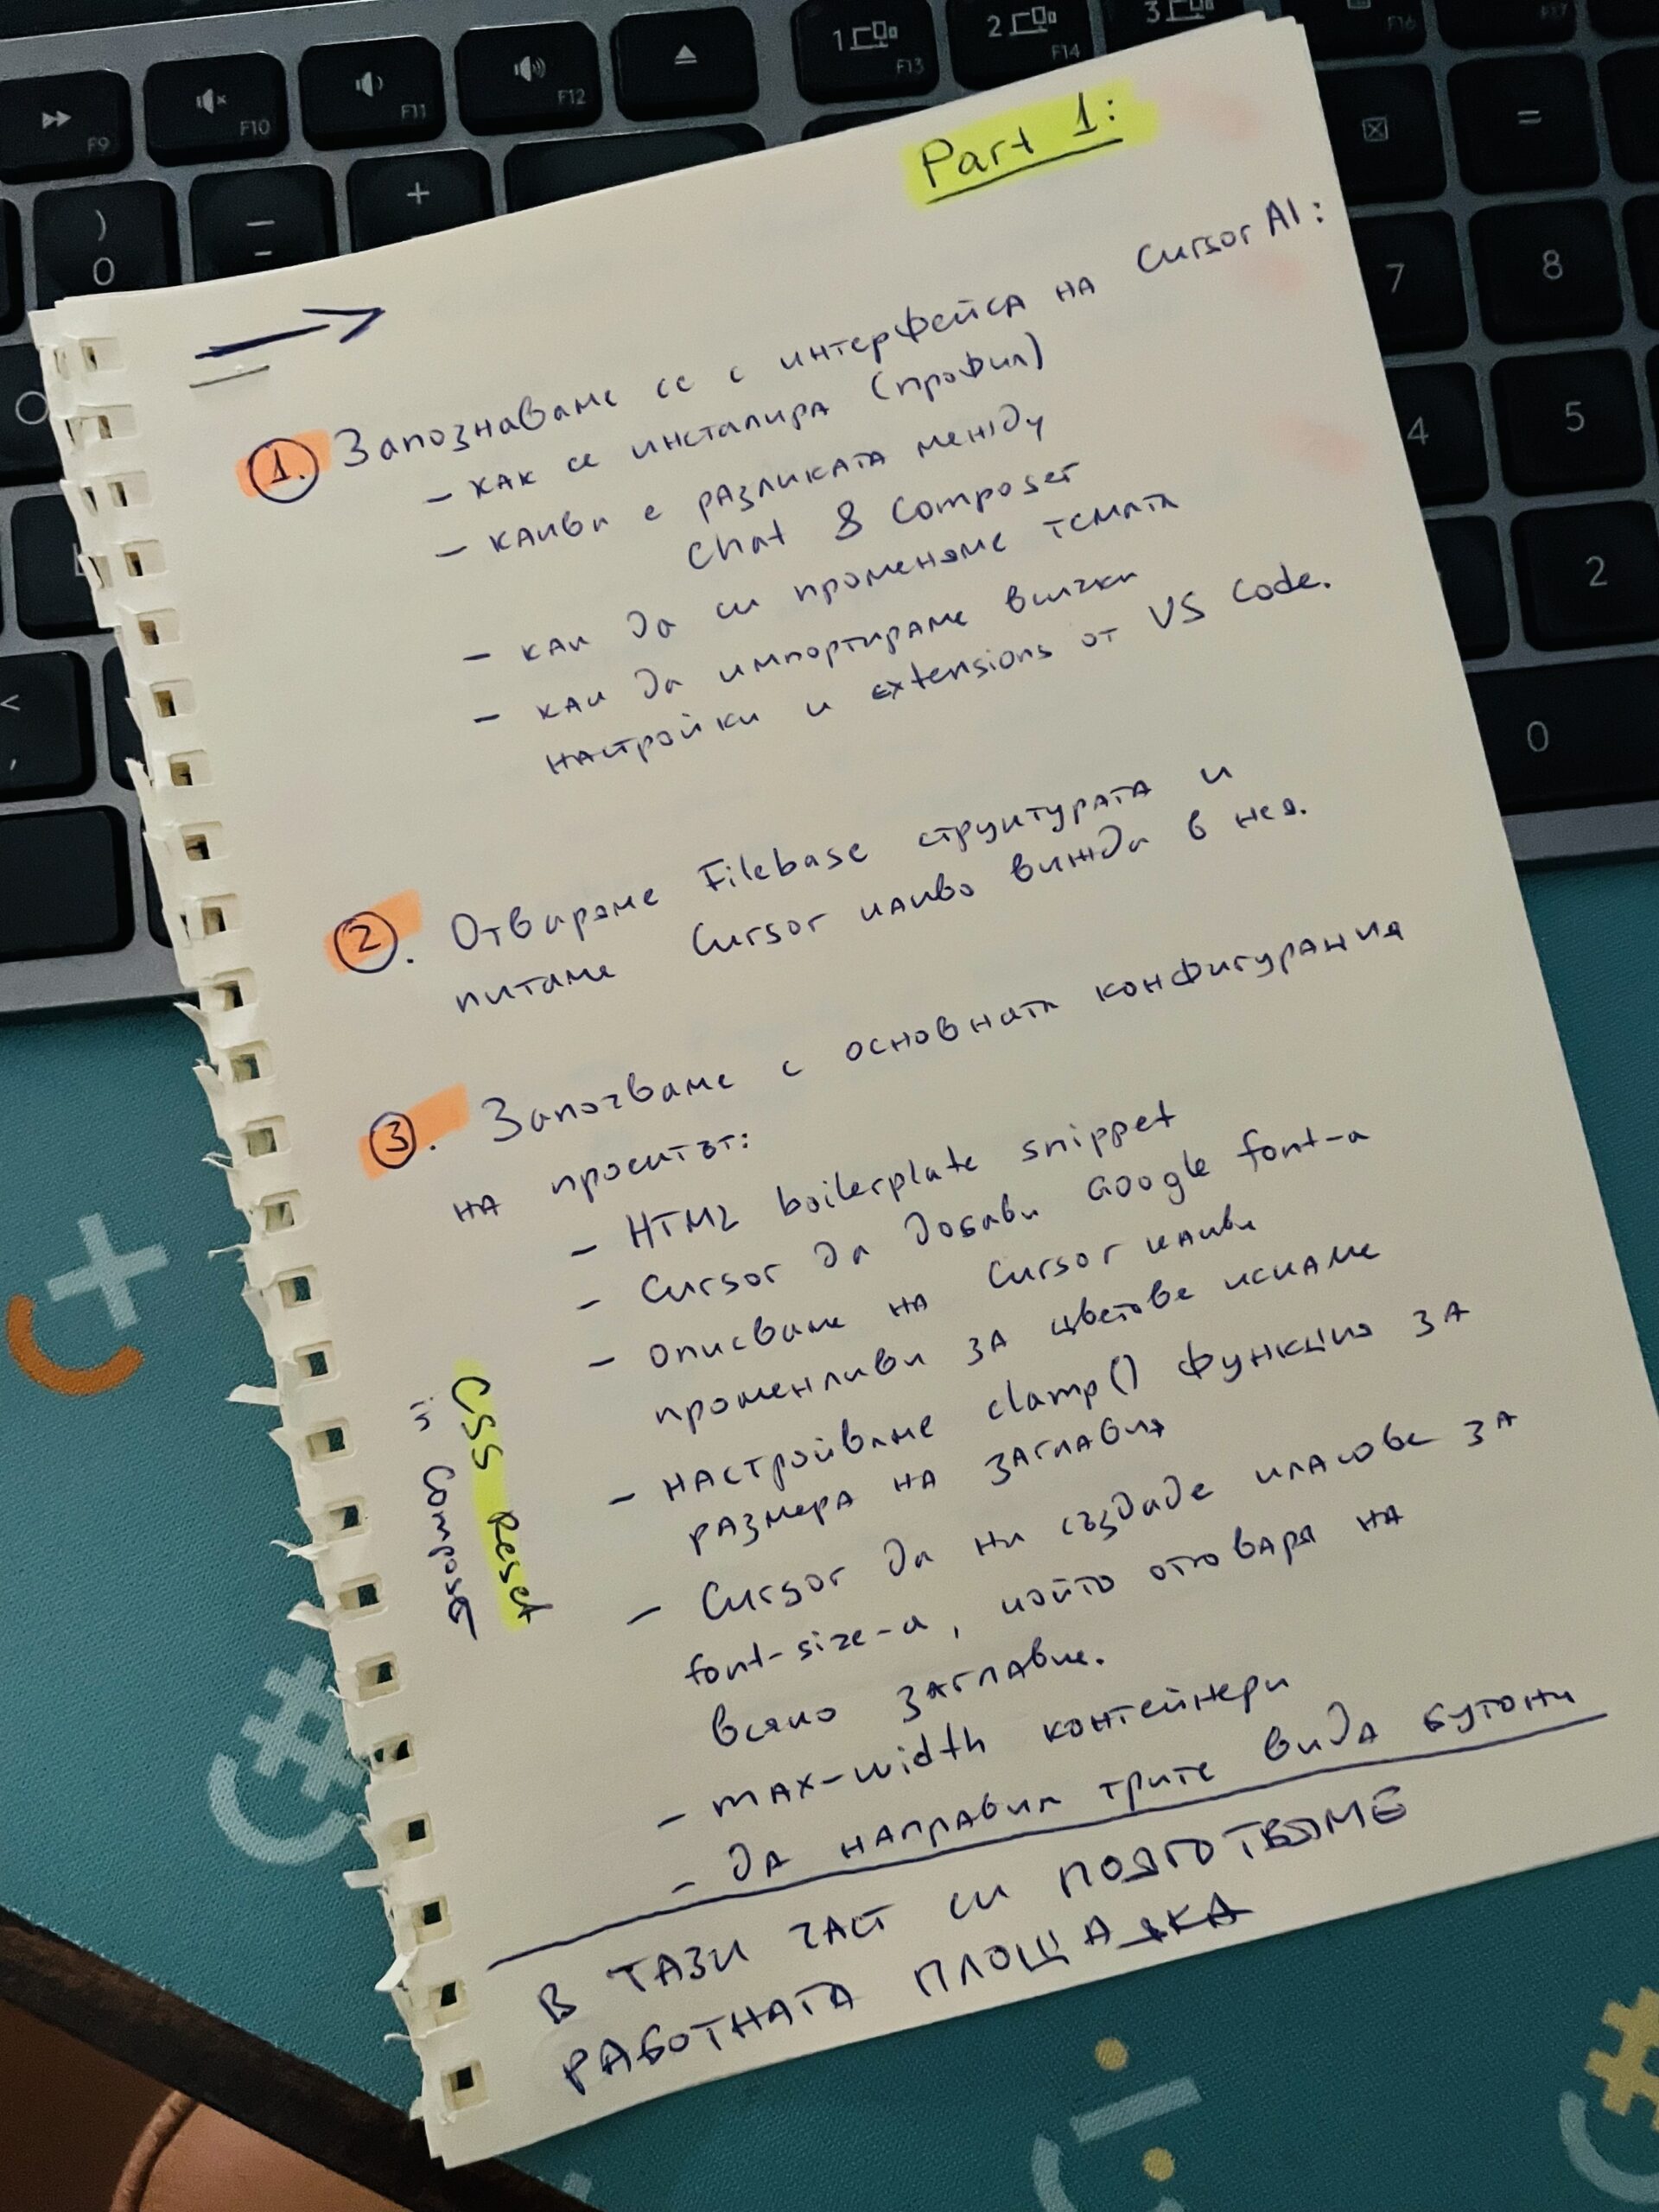 F9
F10
F11
F12
1
F13
2
F14
3
F16
F17
)
0
—
+
=
=
7
8
4
5
2
0
<
,
Part 1:
1. Запознаваме се с интерфейса на Cursor AI:
- как се инсталира (профил)
- каква е разликата между
Chat & Composer
- как да си променяме темата
- как да импортираме всички
настройки и extensions от VS Code.
2. Отваряме Filebase структурата и
питаме Cursor какво вижда в нея.
3. Започваме с основната конфигурация
на проектът:
- HTML boilerplate snippet
- Cursor да добави Google font-а
- описваме на Cursor какви
променливи за цветове искаме
- настройваме clamp() функция за
размера на заглавия
- Cursor да ни създаде класове за
font-size-а, който отговаря на
всяко заглавие.
- max-width контейнери
- да направим трите вида бутони
CSS Reset
В ТАЗИ ЧАСТ СИ ПОДГОТВЯМЕ
РАБОТНАТА ПЛОЩАДКА